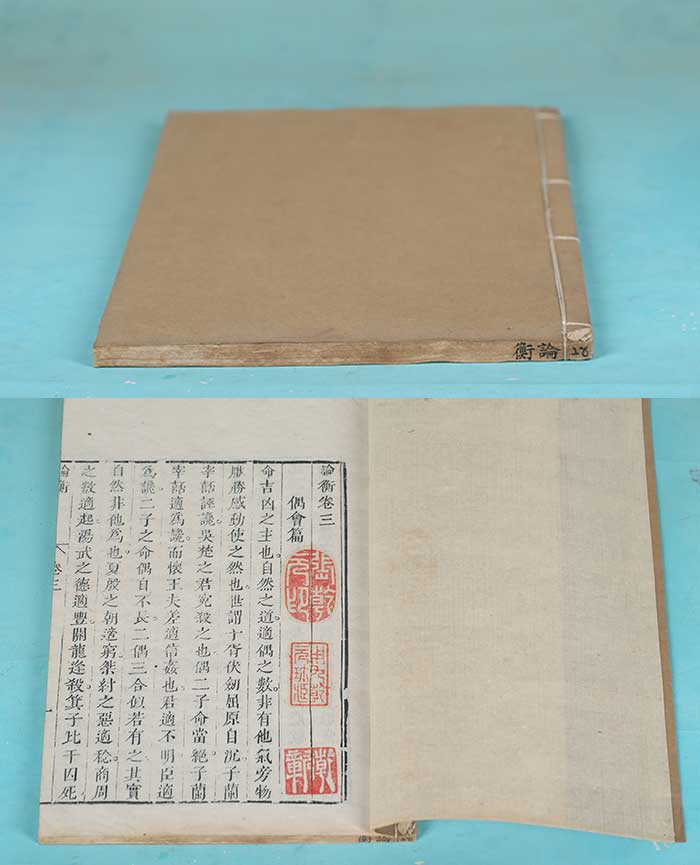 論衡
論衡卷三
偶會篇
命吉凶之主也自然之道適偶之數非有他氣旁物
厭勝感動使之然也世謂子胥伏劒屈原自沉子蘭
宰嚭誣讒吳楚之君冤殺之也偶二子命當絕子蘭
宰嚭適爲讒而懷王夫差適信姦也君適不明臣適
爲讒二子之命偶自不長二偶三合似若有之其實
自然非他爲也夏殷之朝適窮桀紂之惡適稔商周
之數適起湯武之德適豐關龍逢殺箕子比干囚死
論衡 卷三 一
論衡